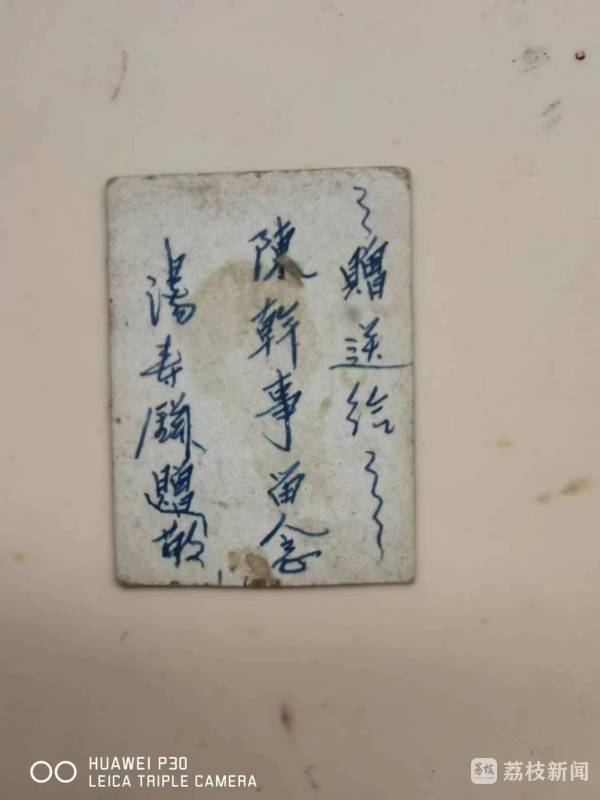 赠送给
陳幹事留念
湯寿 赠敬
HUAWEI P30
LEICA TRIPLE CAMERA
荔枝新闻